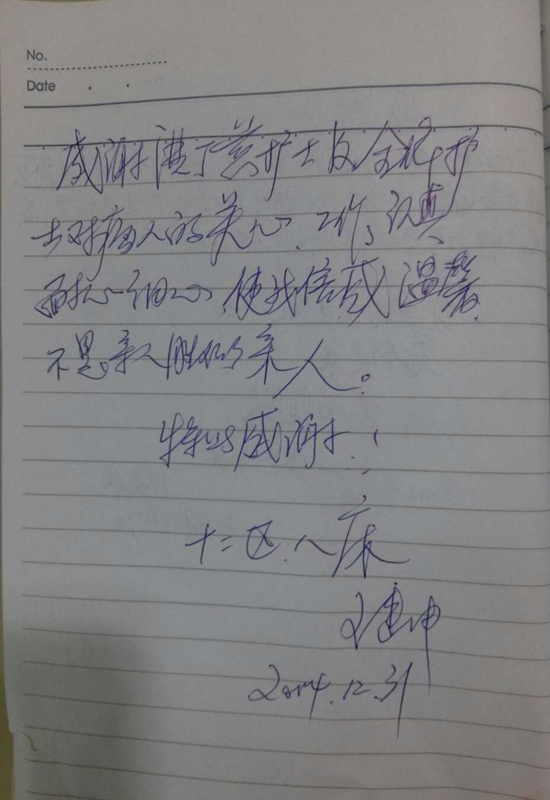 No.
Date
感谢护士及全体护
士对病人的关心、工作认真
而耐心细心,使我倍感温馨,
不是亲人胜似亲人。
特此感谢!
十二区八床
王建中
2014.12.31